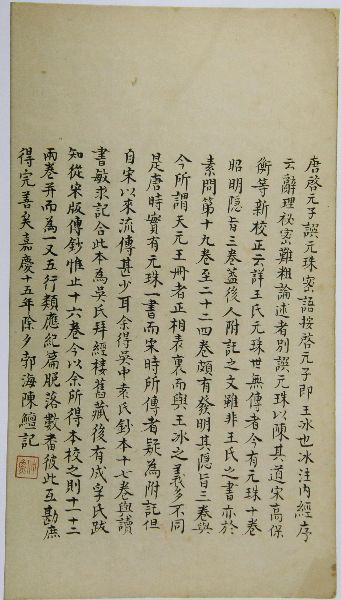 唐啓元子譔元珠密語按啓元子即王冰也冰注内經序
云辭理祕密難粗論述者别譔元珠以陳其道宋高保
衡等新校正云詳王氏元珠世無傳者今有元珠十卷
昭明隱旨三卷蓋後人附託之文雖非王氏之書亦於
素問第十九卷至二十四卷頗有發明其隱旨三卷與
今所謂天元玉册者正相表裏而與王冰之義多不同
是唐時實有元珠一書而宋時所傳者疑為附託但
自宋以來流傳甚少耳余得吳中袁氏鈔本十七卷與讀
書敏求記合此本為吳氏拜經樓舊藏後有咸孚氏跋
知從宋版傳鈔惟止十六卷今以余所得本校之則十一十二
兩卷并而為一又五行類應紀篇脱落數番彼此互勘庶
得完善矣嘉慶十五年除夕郭海陳鱣記